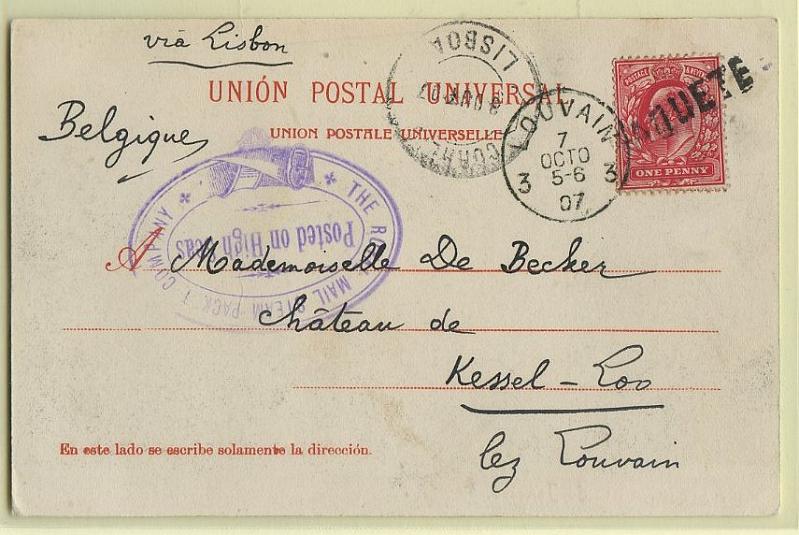 via Lisbon
UNIÓN POSTAL UNIVERSAL
UNION POSTALE UNIVERSELLE
Belgique
LISBOA
LOUVAIN
7
OCTO
3 5-6 3
07
PAQUETE
POSTAGE
ONE PENNY
THE ROYAL MAIL STEAM PACKET COMPANY
Posted on High Seas
A Mademoiselle De Becker
Château de
Kessel-Loo
lez Louvain
En este lado se escribe solamente la dirección.